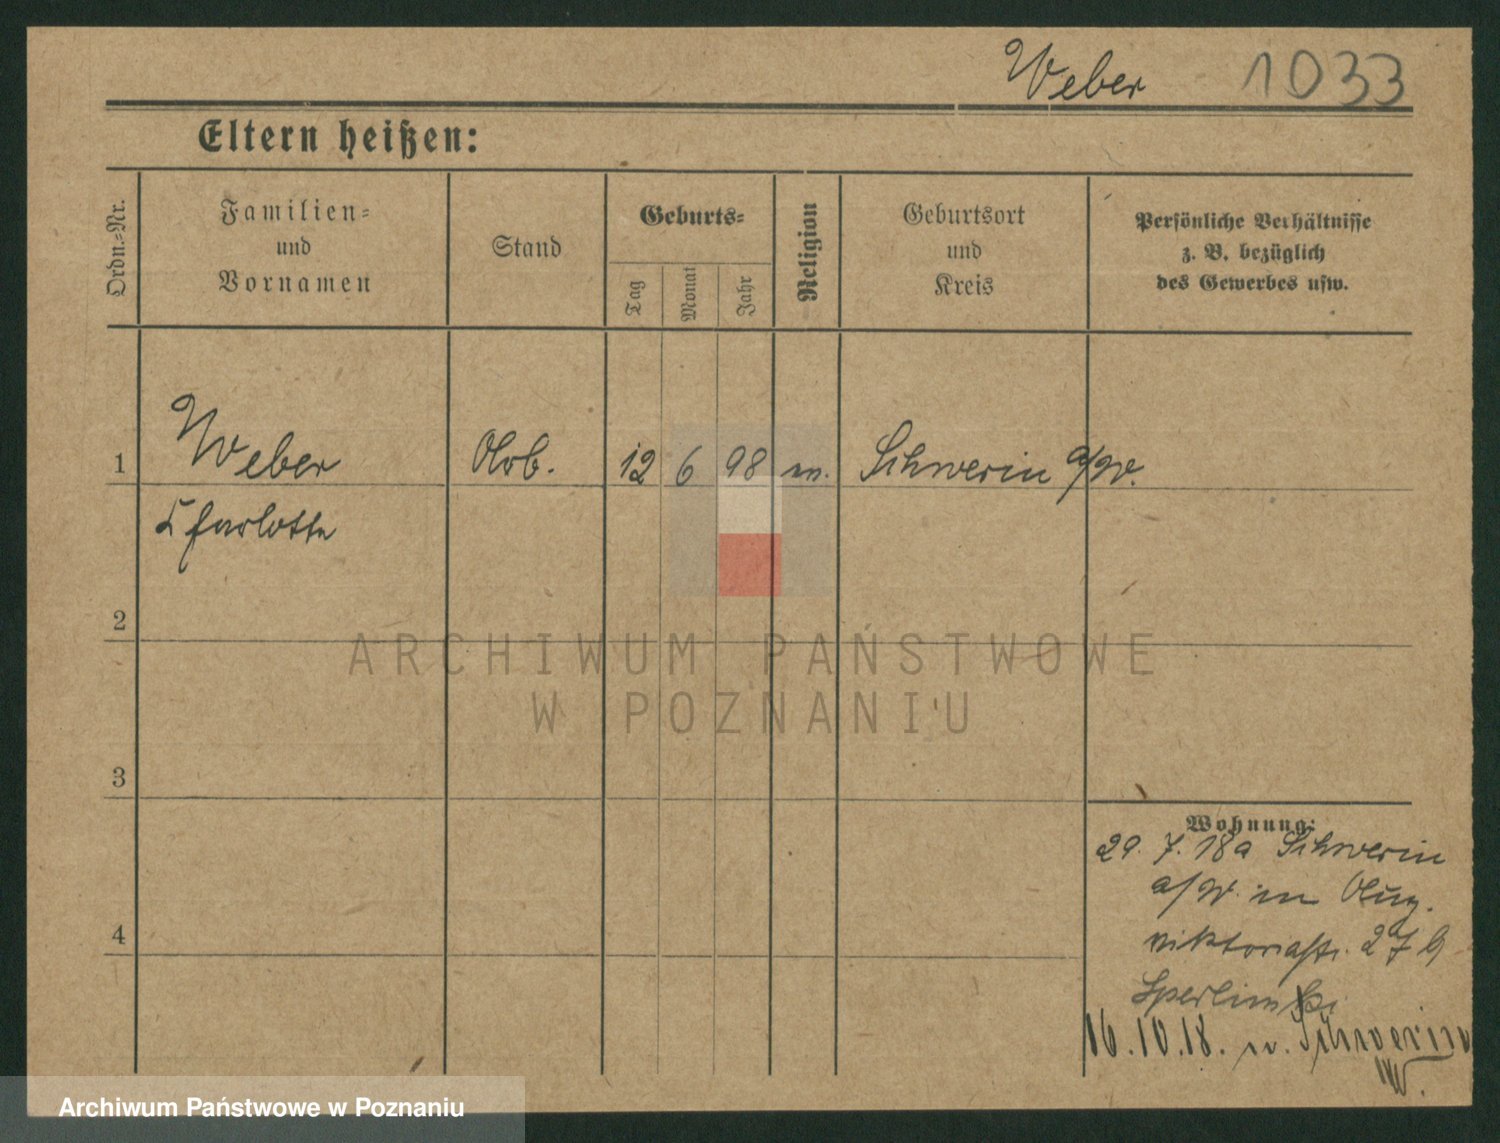 Weber 1033
Eltern heißen:
Ordn.=Nr.
Familien=
und
Vornamen
Stand
Geburts=
Tag
Monat
Jahr
Religion
Geburtsort
und
Kreis
Persönliche Verhältnisse
z. B. bezüglich
des Gewerbes usw.
1 Weber Arb. 12 6 98 Schwerin a/W.
Charlotte
2
ARCHIWUM PAŃSTWOWE
W POZNANIU
3
4
Wohnung:
29. 7. 18 a Schwerin
a/W. in
viktoriastr. 27
16.10.18. n. Schwerin
W.
Archiwum Państwowe w Poznaniu